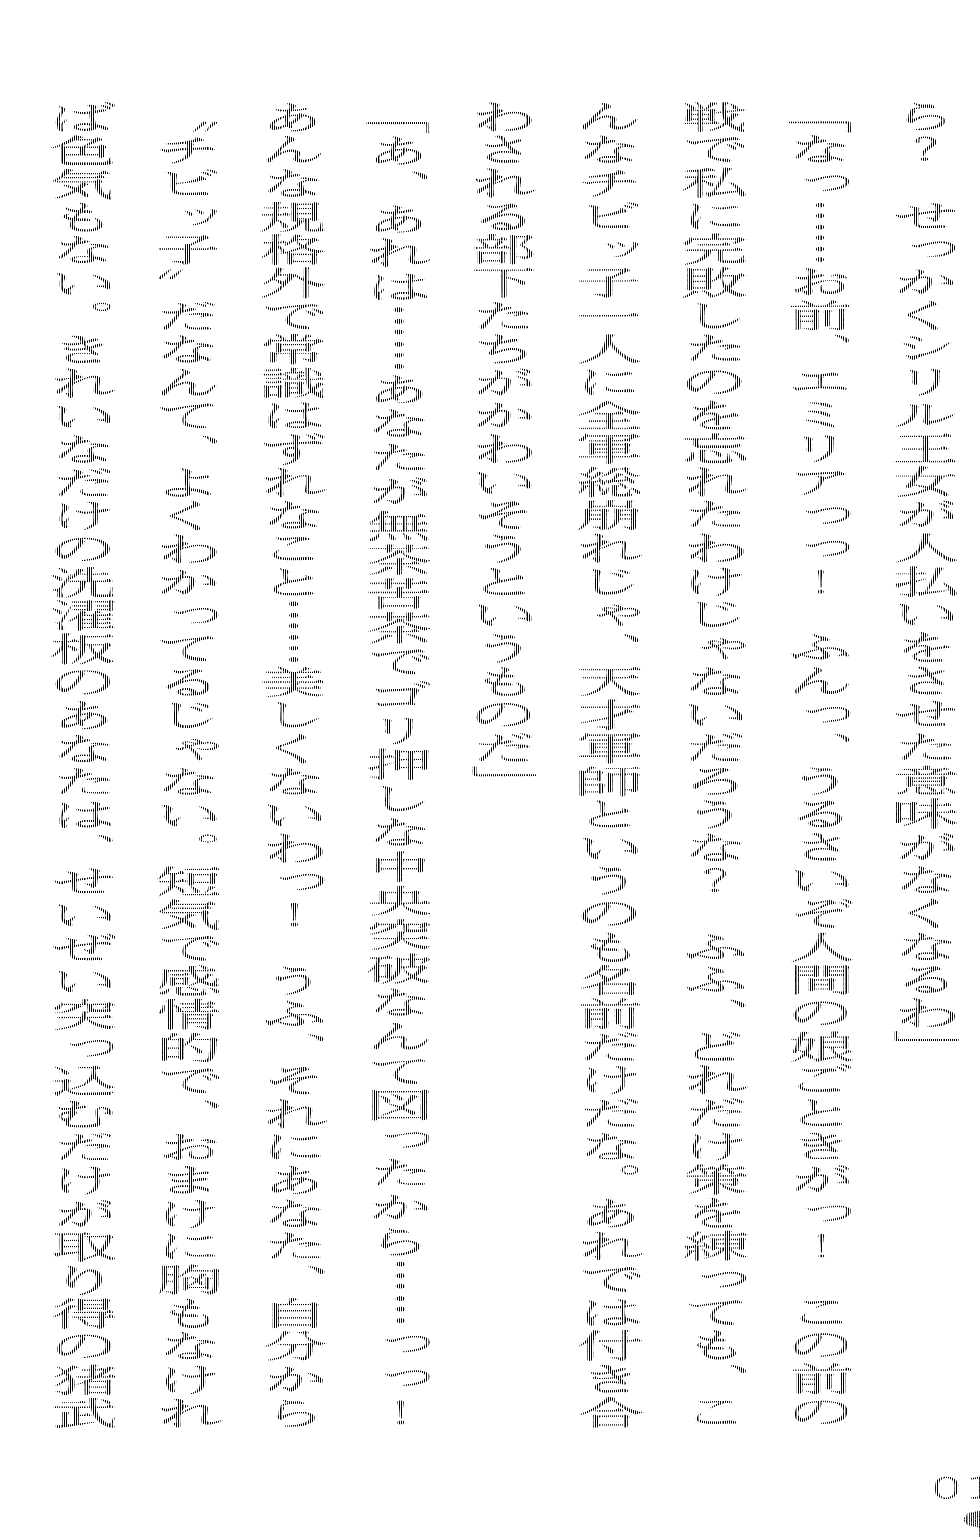 ら？　せっかくシリル王女が人払いをさせた意味がなくなるわ」
「なっ……お前、エミリアっっ！　ふんっ、うるさいぞ人間の娘ごときがっ！　この前の
戦で私に完敗したのを忘れたわけじゃないだろうな？　ふふ、どれだけ策を練っても、こ
んなチビッ子一人に全軍総崩れじゃ、天才軍師というのも名前だけだな。あれでは付き合
わされる部下たちがかわいそうというものだ」
「あ、あれは……あなたが無茶苦茶でゴリ押しな中央突破なんて図ったから……っっ！
あんな規格外で常識はずれなこと……美しくないわっ！　うふ、それにあなた、自分から
〝チビッ子〟だなんて、よくわかってるじゃない。短気で感情的で、おまけに胸もなけれ
ば色気もない。きれいなだけの洗濯板のあなたは、せいぜい突っ込むだけが取り得の猪武
01